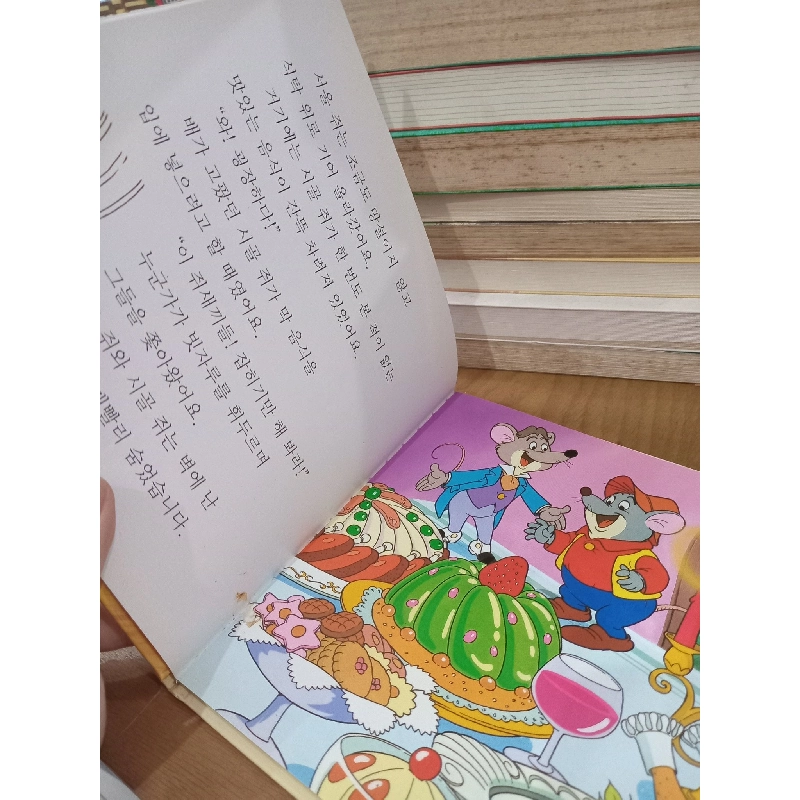 서울 쥐는 조금도 망설이지 않고
식탁 위로 기어 올라갔어요.
거기에는 시골 쥐가 한 번도 본 적이 없는
맛있는 음식이 잔뜩 차려져 있었어요.
“와! 굉장하다!”
배가 고팠던 시골 쥐가 막 음식을
입에 넣으려고 할 때였어요.
“이 쥐새끼들! 잡히기만 해 봐라!”
누군가가 빗자루를 휘두르며
그들을 쫓아왔어요.
쥐와 시골 쥐는 벽에 난
숨었습니다.